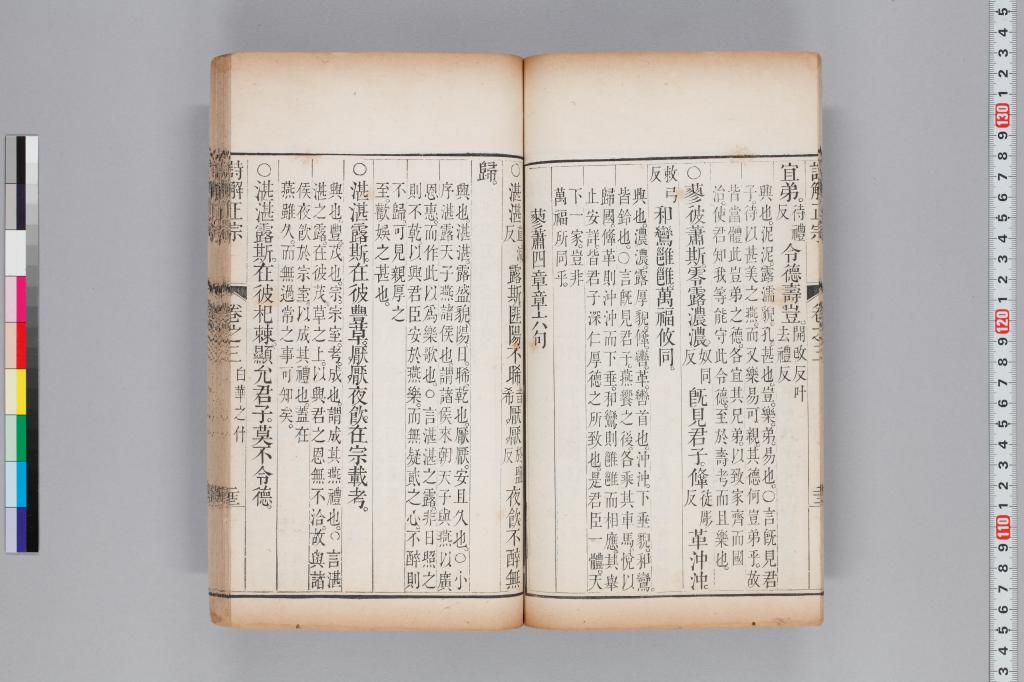 詩解正宗 卷之三
宜弟待禮反令德壽豈開改反叶去禮反
興也泥泥露濡貌孔甚也豈樂弟易也○言既見君
子待以甚美之燕而又樂易可親其德何豈弟乎故
皆當體此豈弟之德各宜其兄弟以致家齊而國
治使君知我等能守此令德至於壽考而且樂也
○蓼彼蕭斯零露濃濃奴同反既見君子鞗徒彫反革沖沖
敕弓反和鸞雝雝萬福攸同
興也濃濃露厚貌鞗轡革轡首也沖沖下垂貌和鸞
皆鈴也○言既見君子燕饗之後各乘其車馬悅以
歸國鞗革則沖沖而下垂和鸞則雝雝而相應其舉
止安詳皆君子深仁厚德之所致也是君臣一體天
下一家豈非
萬福所同乎
蓼蕭四章章六句
○湛湛直減反露斯匪陽不晞音希厭厭反夜飲不醉無
歸
興也湛湛露盛貌陽日晞乾也厭厭安且久也○小
序湛露天子燕諸侯也謂諸侯來朝天子與燕以廣
恩惠而作此以爲樂歌也○言湛湛之露非日照之
則不乾以興君臣安於燕樂而無疑貳之心不醉則
不歸可見親厚之
至歡娛之甚也
○湛湛露斯在彼豐草厭厭夜飲在宗載考
興也豐茂也宗宗室考成也謂成其燕禮也○言湛
湛之露在彼茂草之上以興君之恩無不洽故與諸
侯夜飲於宗室以成其禮也蓋在
燕雖久而無過常之事可知矣
○湛湛露斯在彼杞棘顯允君子莫不令德
詩解正宗 卷之三 白華之什